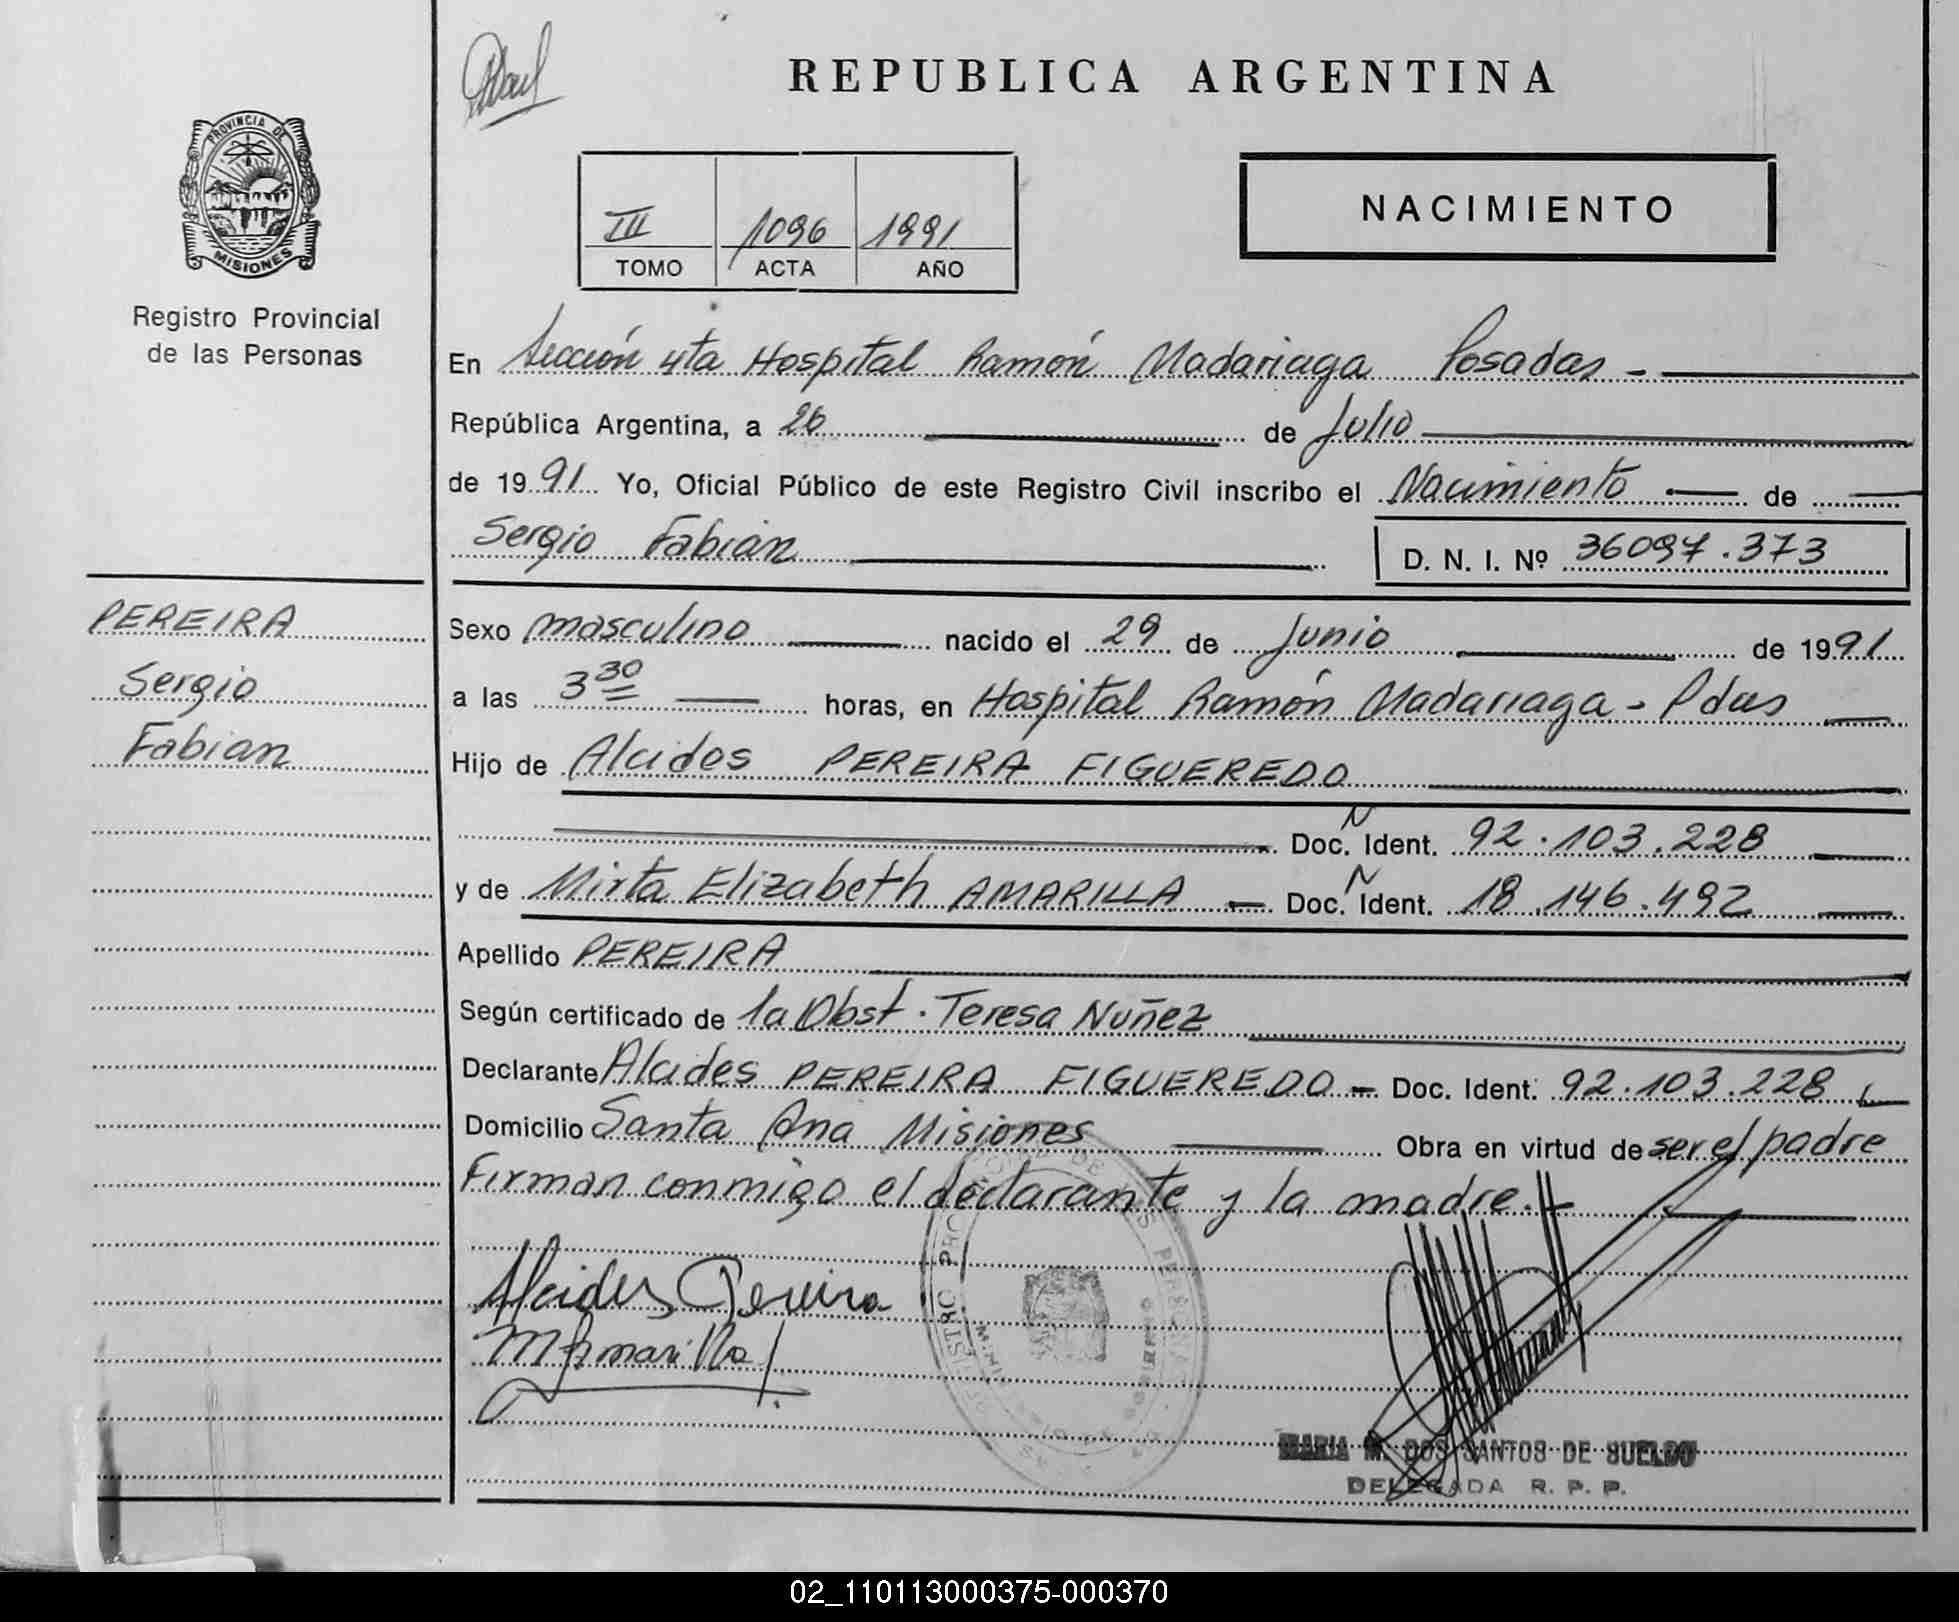 REPUBLICA ARGENTINA
PROVINCIA DE
MISIONES
Registro Provincial
de las Personas
III 1096 1991
TOMO ACTA AÑO
NACIMIENTO
En Sección 4ta Hospital Ramón Madariaga Posadas -
República Argentina, a 26 de Julio
de 1991 Yo, Oficial Público de este Registro Civil inscribo el Nacimiento de
Sergio Fabian D. N. I. Nº 36097.373
PEREIRA
Sergio
Fabian
Sexo masculino nacido el 29 de Junio de 1991
a las 3 30 horas, en Hospital Ramón Madariaga - Pdas
Hijo de Alcides PEREIRA FIGUEREDO
Doc. N Ident. 92.103.228
y de Mirta Elizabeth AMARILLA Doc. N Ident. 18.146.492
Apellido PEREIRA
Según certificado de la Obst. Teresa Nuñez
Declarante Alcides PEREIRA FIGUEREDO - Doc. Ident. 92.103.228
Domicilio Santa Ana Misiones Obra en virtud de ser el padre
Firman conmigo el declarante y la madre.-
Alcides Pereira
MAmarilla
MARIA M. DOS SANTOS DE SUELDO
DELEGADA R. P. P.
02_110113000375-000370